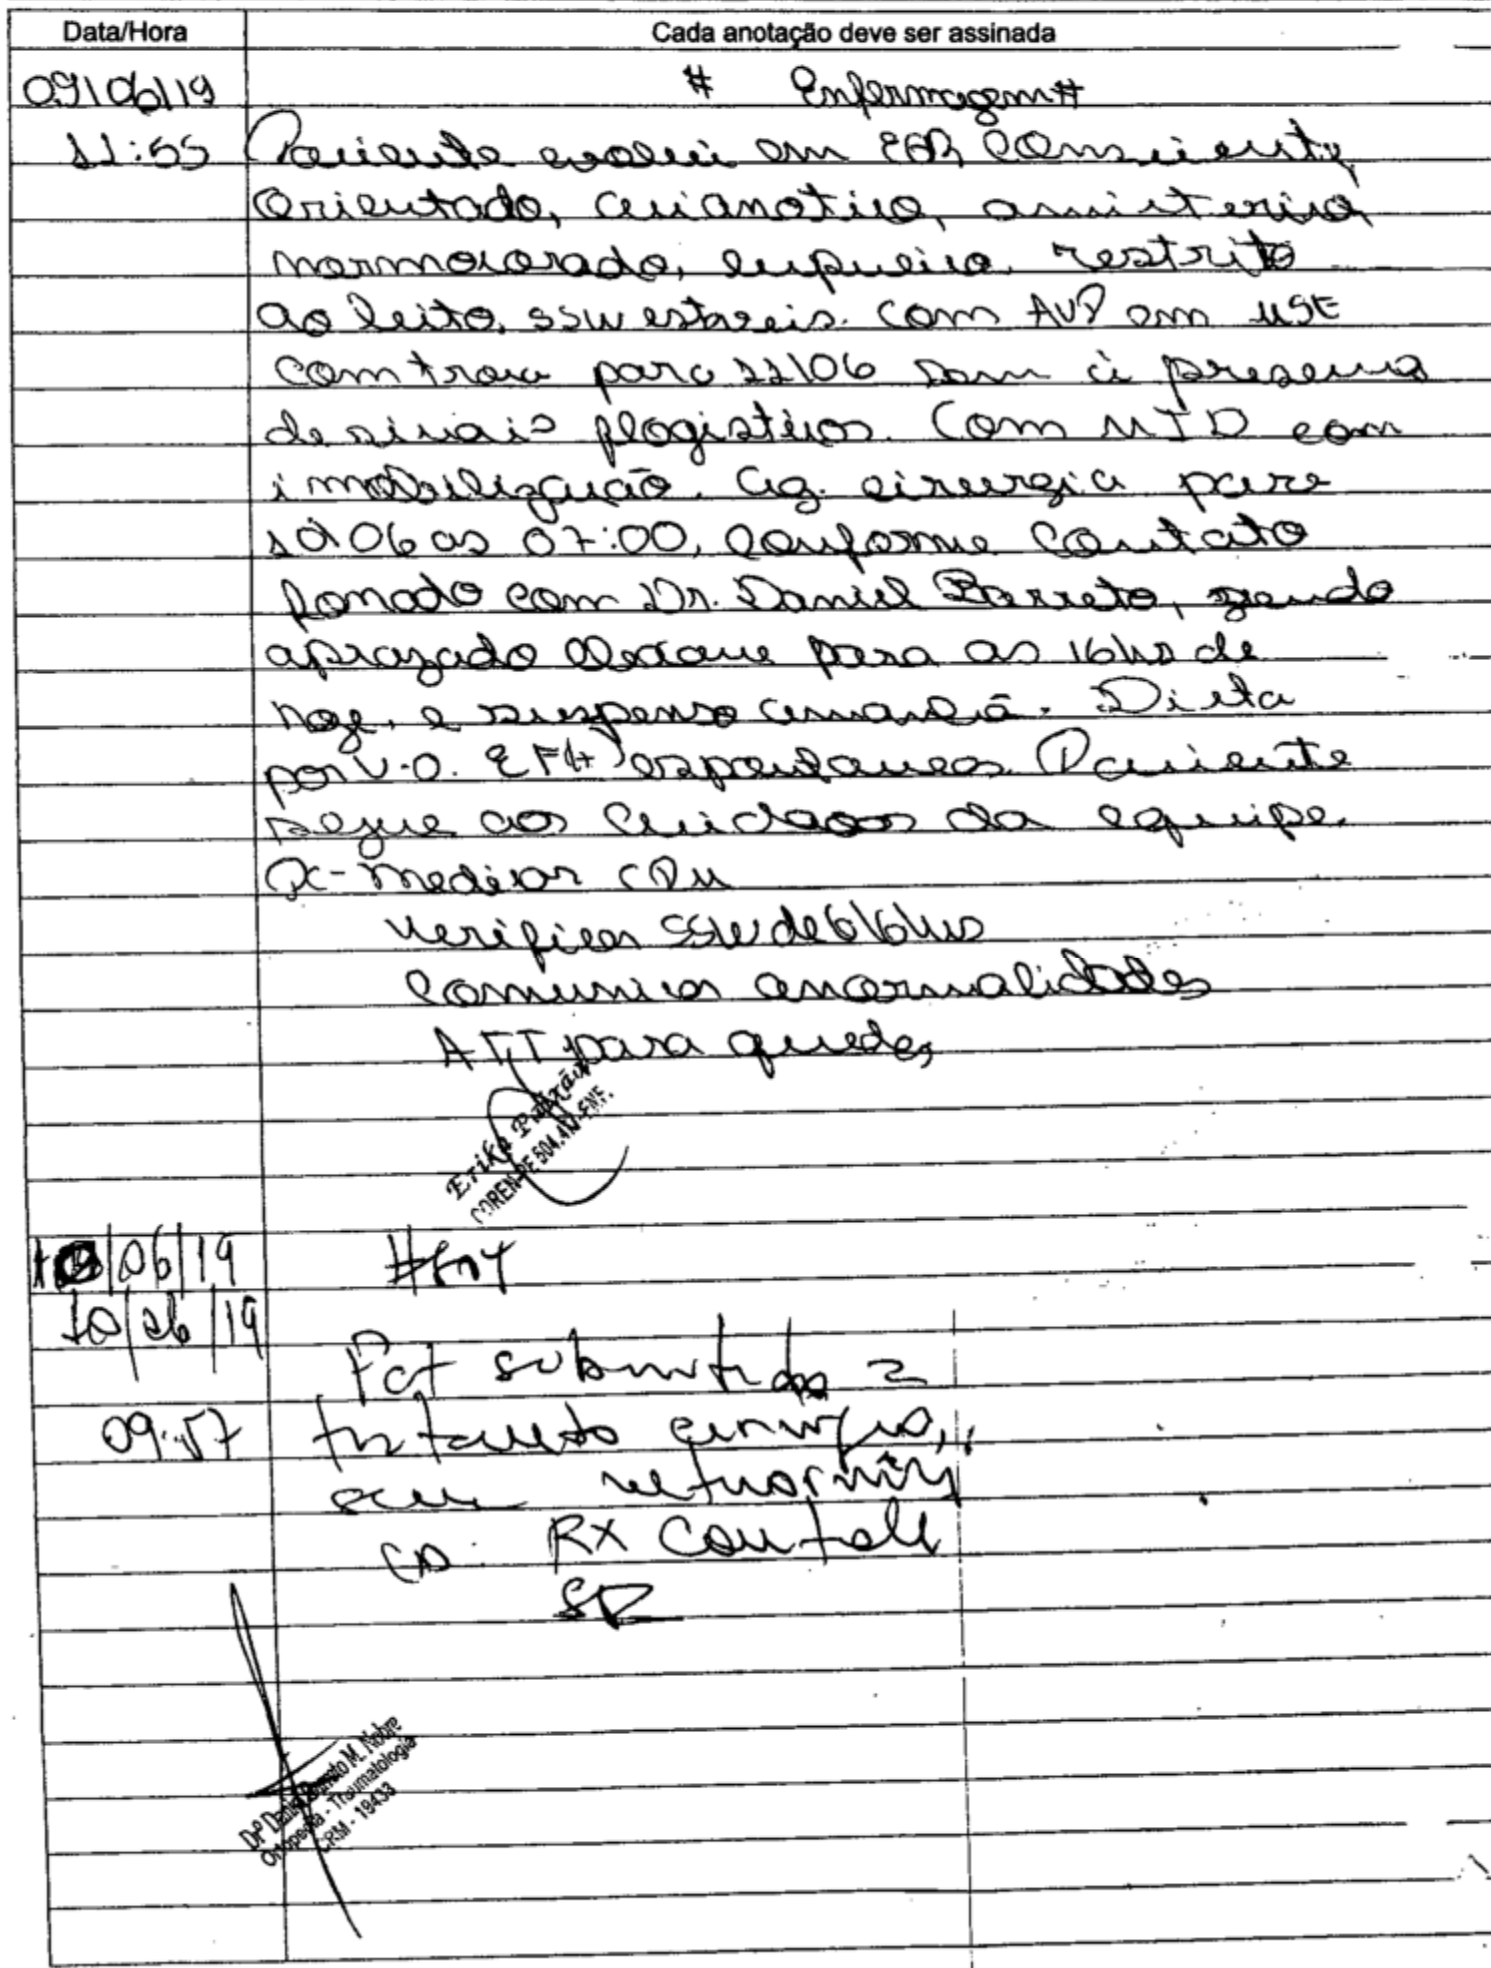 Data/Hora Cada anotação deve ser assinada
09/06/19 # Enfermagem #
11:55 Paciente evolui em EGR, consciente,
orientado, acianotico, anictérico,
normocorado, eupneico, restrito
ao leito, SSVV estaveis. Com AVP em MSE
com troca para 11/06 sem a presença
de sinais flogisticos. Com MID com
imobilização. Ag. cirurgia para
10/06 as 07:00, conforme contato
com Dr. Daniel Barreto, sendo
aprazado Clexane para as 16hs de
hoje, e suspenso amanhã. Dieta
por V.O. EF4+ espontaneos. Paciente
segue aos cuidados da equipe.
medicar CPM
Verificar SSVV de 6/6hs
Comunicar anormalidades
ATT para quedas
Erika
COREN-PE ENF.
/06/19
10/06/19 Pct submetido a
09:57 tratamento cirurgico,
sem
CD: RX controle
Drº Daniel Barreto M. Nobre
Ortopedia - Traumatologia
CRM - 19433